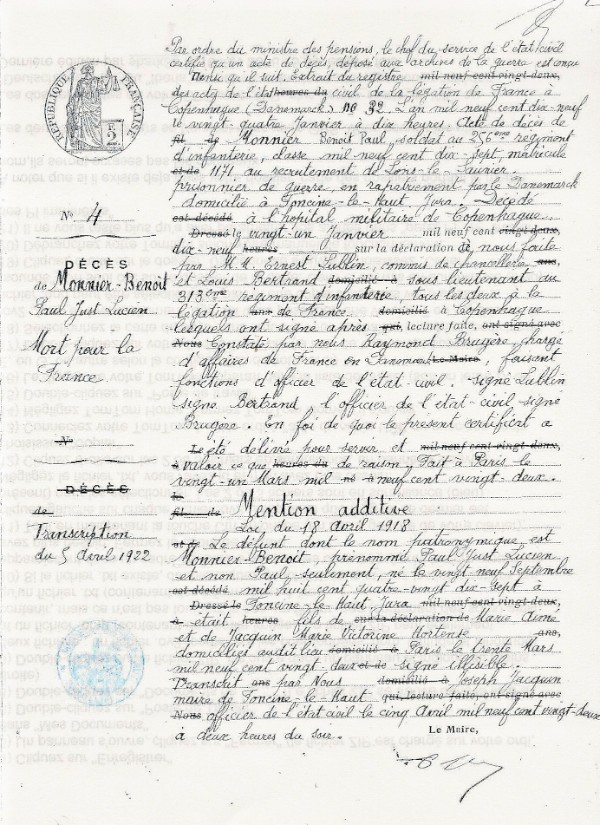 RÉPUBLIQUE FRANÇAISE
Nº 4
DÉCÈS
de Monnier-Benoit
Paul Just Lucien
Mort pour la
France
Nº
DÉCÈS
de
Transcription
du 5 avril 1922
Par ordre du ministre des pensions, le chef du service de l'état civil
certifie qu'un acte de décès, déposé aux archives de la guerre est conçu
ainsi qu'il suit. Extrait du registre mil neuf cent vingt-deux,
des actes de l'état heures du civil de la légation de France à
Copenhague (Danemark) no 32. L'an mil neuf cent dix-neuf
le vingt-quatre Janvier à dix heures. Acte de décès de
fil de Monnier Benoit Paul, soldat au 256ème régiment
d'infanterie, classe mil neuf cent dix-sept, matricule
et de 1171 au recrutement de Lons-le-Saunier.
prisonnier de guerre, en rapatriement par le Danemarck
domicilié à Foncine-le-Haut, Jura. Décédé
est décédé à l'hopital militaire de Copenhague
Dressé le vingt-un Janvier mil neuf cent vingt-deux,
dix-neuf heures sur la déclaration de nous faite
par M.M. Ernest Lublin, commis de chancellerie ans,
et Louis Bertrand domicilié à sous lieutenant au
313ème régiment d'infanterie, tous les deux à la
légation ans de France. domicilié à Copenhague
lesquels ont signé après qui, lecture faite, ont signé avec
Nous Constaté par nous Raymond Brugère, chargé
d'affaires de France en Danemark le Maire, faisant
fonctions d'officier de l'état-civil. signé Lublin
signé Bertrand l'officier de l'état-civil signé
Brugère. En foi de quoi le présent certificat a
Le été délivré pour servir et mil neuf cent vingt-deux,
à valoir ce que heures du de raison. Fait à Paris le
vingt-un Mars mil né à neuf cent vingt-deux.
Mention additive
fil de Loi du 18 Avril 1918
et de Le défunt dont le nom patronymique est
Monnier-Benoit, prénommé Paul Just Lucien
et non Paul, seulement, né le vingt neuf Septembre
est décédé mil huit cent quatre-vingt dix-sept à
Dressé le Foncine-le-Haut Jura mil neuf cent vingt-deux,
à était heures fils de sur la déclaration de Marie Aimé
et de Jacquin Marie Victorine Hortense ans,
domiciliés audit lieu domicilié à Paris le trente Mars
mil neuf cent vingt-deux et de signé illisible.
Transcrit ans par Nous domicilié à Joseph Jacquin
maire de Foncine-le-Haut qui, lecture faite, ont signé avec
Nous officier de l'état civil le cinq Avril mil neuf cent vingt-deux
à deux heures du soir. Le Maire,